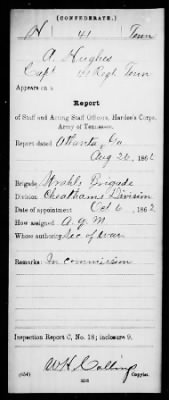 (CONFEDERATE.)
H 41 Tenn
A. Hughes
Capt 41 Regt. Tenn
Appears on a
Report
of Staff and Acting Staff Officers, Hardee's Corps,
Army of Tennessee.
Report dated Atlanta, Ga
Aug 20, 186
Brigade, Strahl's Brigade
Division Cheatham's Division
Date of appointment Oct 6, 1862
How assigned A. Q. M.
Whose authority Sec of war
Remarks: In commission
Inspection Report C, No. 18; inclosure 9.
W H Collins
Copyist.